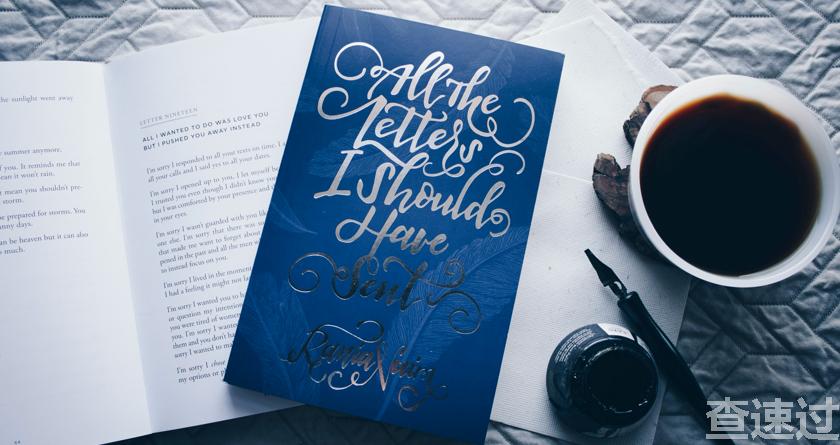 he sunlight went away
summer anymore.
f you. It reminds me that
ean it won't rain.
t mean you shouldn't pre-
storm.
be prepared for storms. You
nny days.
an be heaven but it can also
much.
64
LETTER NINETEEN
ALL I WANTED TO DO WAS LOVE YOU
BUT I PUSHED YOU AWAY INSTEAD
I'm sorry I responded to all your texts on time. I
all your calls and I said yes to all your dates.
I'm sorry I opened up to you. I let myself be
I trusted you even though I didn't know
but I was comforted by your presence and
in your eyes.
I'm sorry I wasn't guarded with you like
one else. I'm sorry that there was
that made me want to forget about
pened in the past and all the men
to instead focus on you.
I'm sorry I lived in the moment
I had a feeling it might not
I'm sorry I wanted you to
or question my intention
you were tired of women
them and you don't
sorry I wanted to
I'm sorry I
my options
All The
Letters
I Should
Have
Sent
Rania Naim
查速过